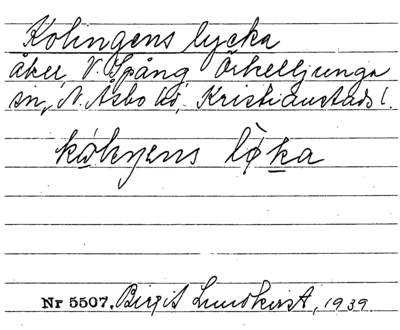 Kolingens lycka
åker, V. Spång Örkelljunga
sn, N. Åsbo hd, Kristianstads l.
løka
Nr 5507. Birgit Lundkvist, 1939.